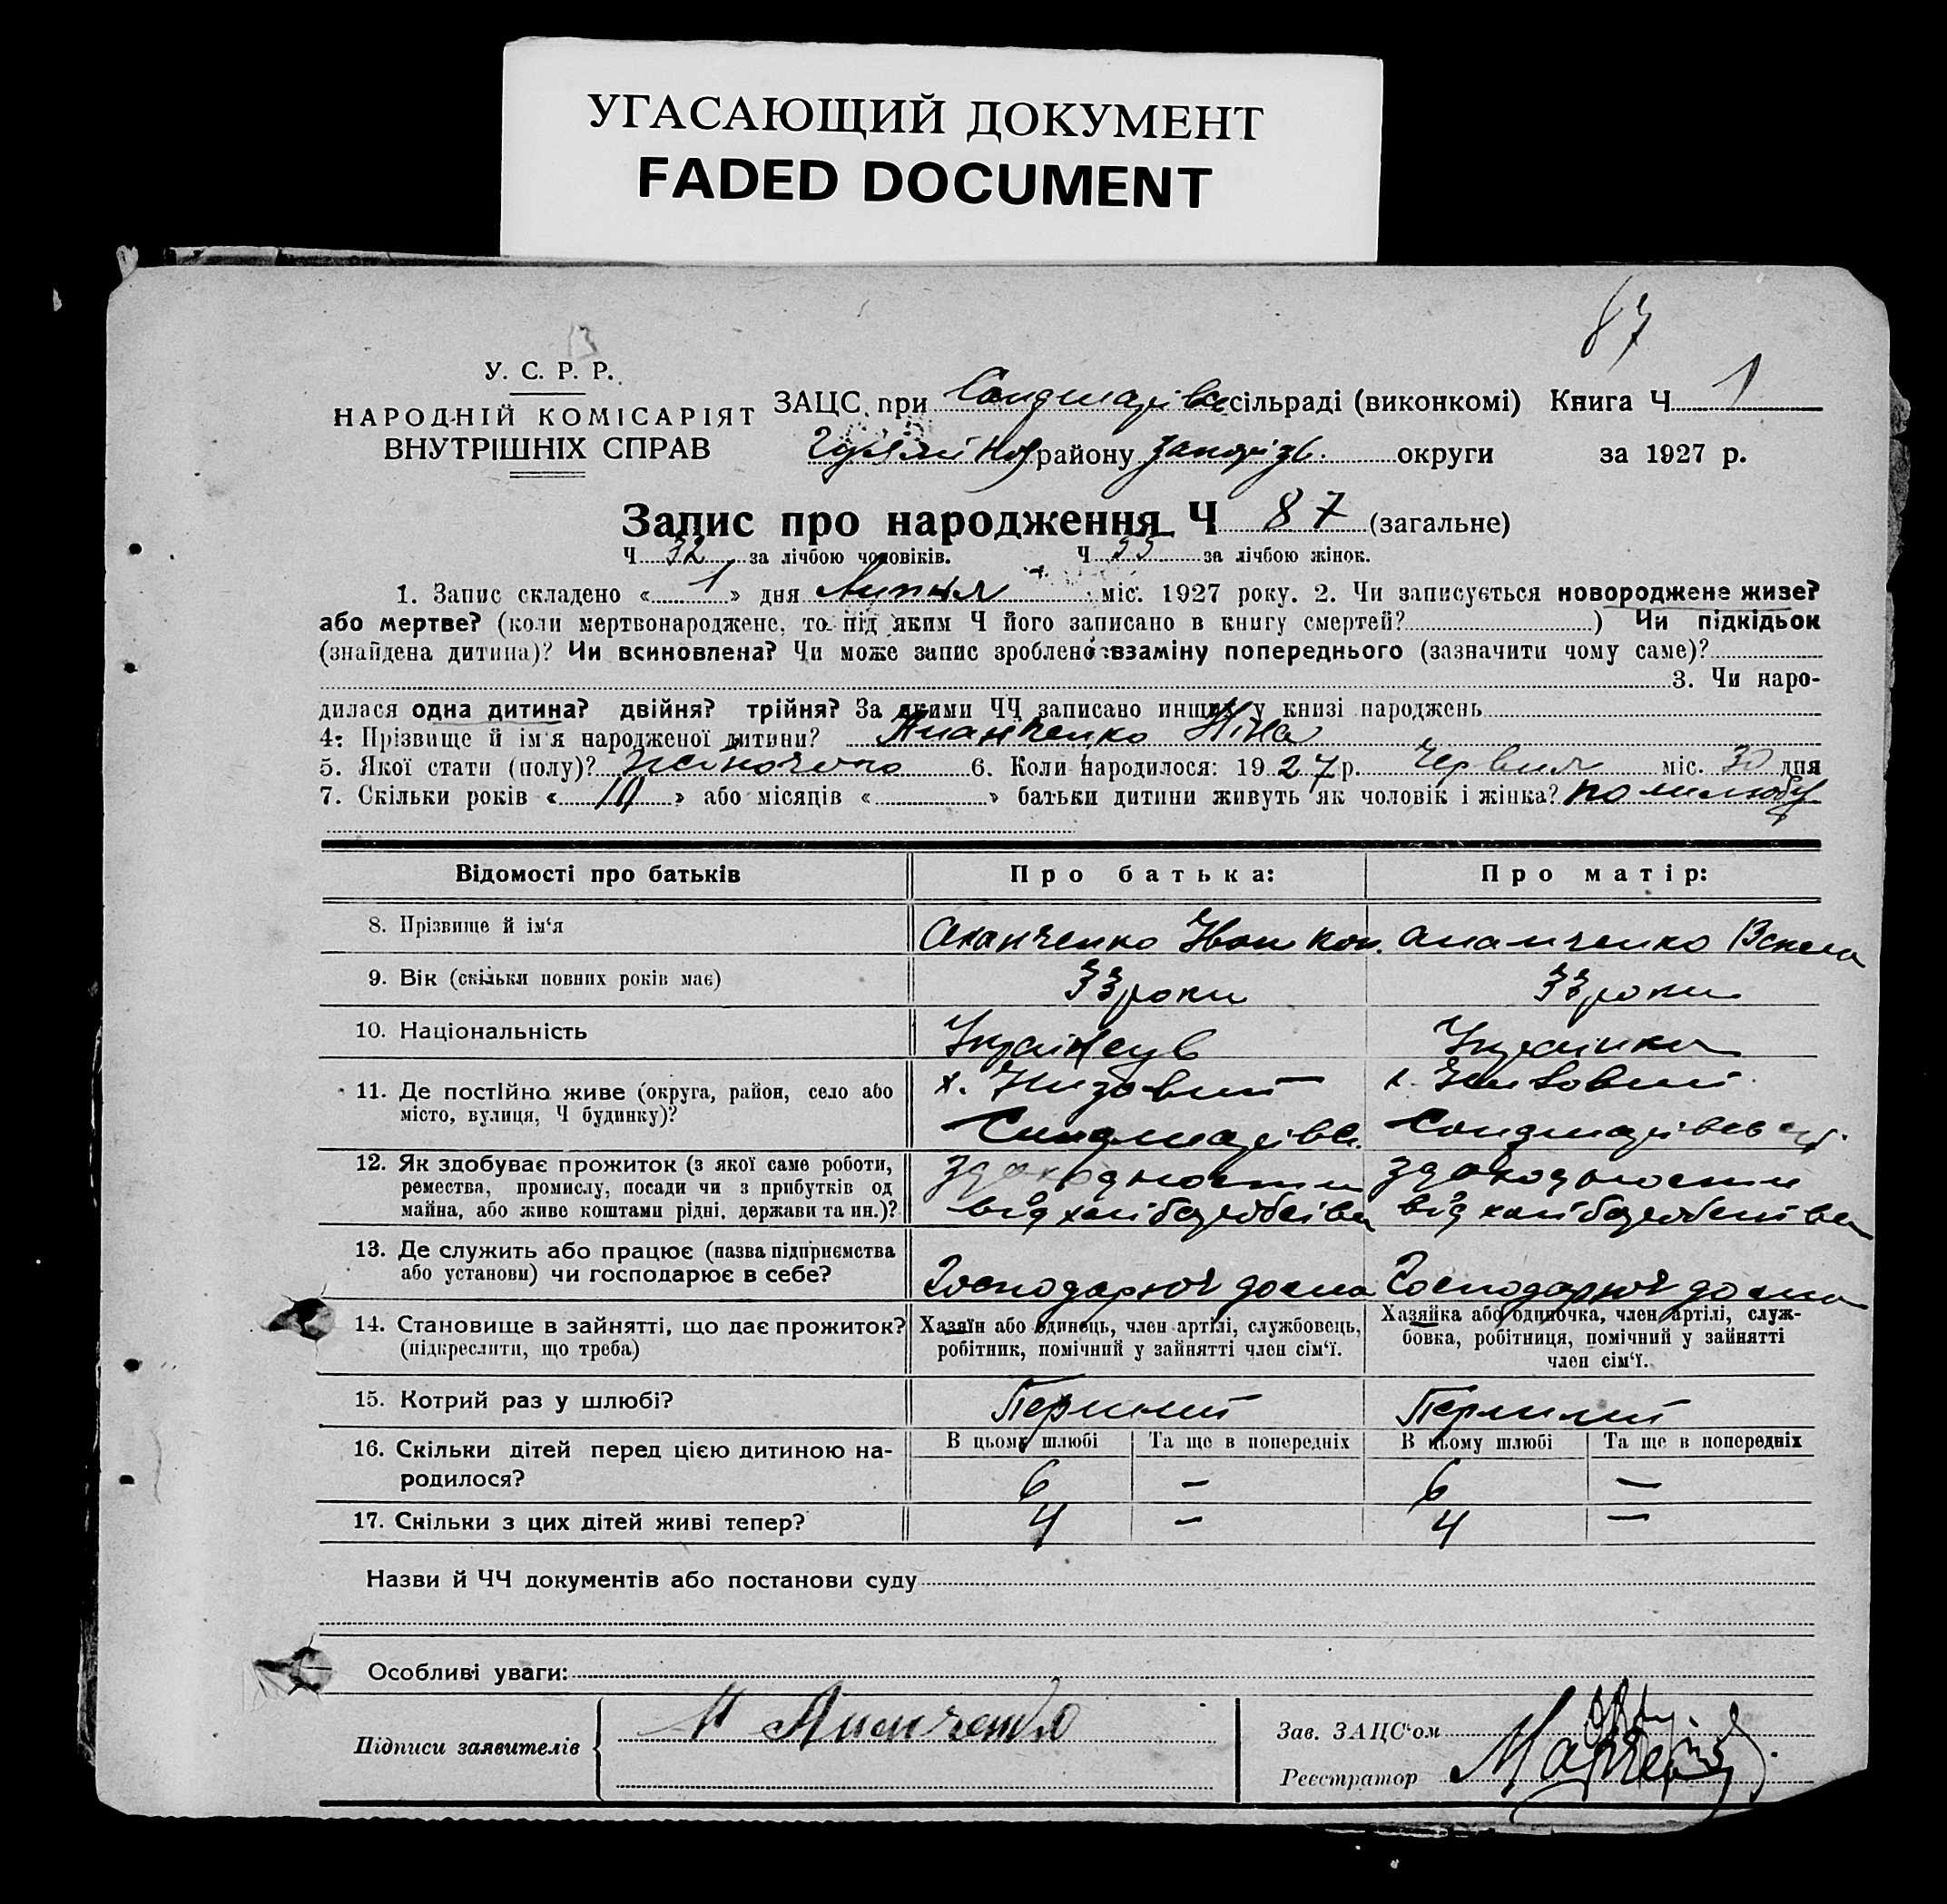 УГАСАЮЩИЙ ДОКУМЕНТ
FADED DOCUMENT
87
У. С. Р. Р.
НАРОДНІЙ КОМІСАРІЯТ
ВНУТРІШНІХ СПРАВ
ЗАЦС при сільраді (виконкомі) Книга Ч 1
району округи за 1927 р.
Запис про народження Ч 87 (загальне)
Ч 32 за лічбою чоловіків. Ч 55 за лічбою жінок.
1. Запис складено « 1 » дня Липня міс. 1927 року. 2. Чи записується новороджене живе?
або мертве? (коли мертвонароджене, то під яким Ч його записано в книгу смертей? ) Чи підкідьок
(знайдена дитина)? Чи всиновлена? Чи може запис зроблено взаміну попереднього (зазначити чому саме)?
3. Чи наро-
дилася одна дитина? двійня? трійня? За якими ЧЧ записано инших у книзі народжень
4. Прізвище й ім'я народженої дитини? Ніна
5. Якої стати (полу)? жіночого 6. Коли народилося: 1927 р. Червня міс. 30 дня
7. Скільки років « 10 » або місяців « » батьки дитини живуть як чоловік і жінка?
Відомості про батьків Про батька: Про матір:
8. Прізвище й ім'я
9. Вік (скільки повних років має) 33 роки 33 роки
10. Національність Українець Українка
11. Де постійно живе (округа, район, село або
місто, вулиця, Ч будинку)?
12. Як здобуває прожиток (з якої саме роботи,
ремества, промислу, посади чи з прибутків од
майна, або живе коштами рідні, держави та ин.)?
13. Де служить або працює (назва підприємства
або установи) чи господарює в себе? Господарює дома Господарює дома
14. Становище в зайнятті, що дає прожиток?
(підкреслити, що треба)
Хазяїн або одинець, член артілі, службовець,
робітник, помічний у зайнятті член сім'ї.
Хазяйка або одиночка, член артілі, служ-
бовка, робітниця, помічний у зайнятті
член сім'ї.
15. Котрий раз у шлюбі? Перший Перший
16. Скільки дітей перед цією дитиною на-
родилося?
В цьому шлюбі Та ще в попередніх В цьому шлюбі Та ще в попередніх
6 — 6 —
17. Скільки з цих дітей живі тепер? 4 — 4 —
Назви й ЧЧ документів або постанови суду
Особливі уваги:
Підписи заявителів
Зав. ЗАЦС'ом
Реєстратор